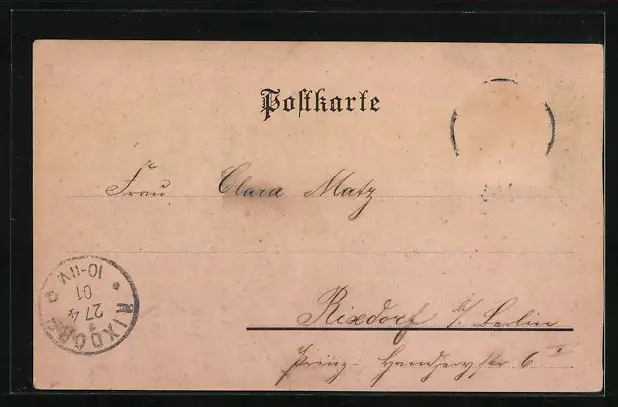 Postkarte
Frau Clara Matz
Rixdorf b/ Berlin
Prinz-Handjery str 6 I
RIXDORF
27 4
01
10-11V